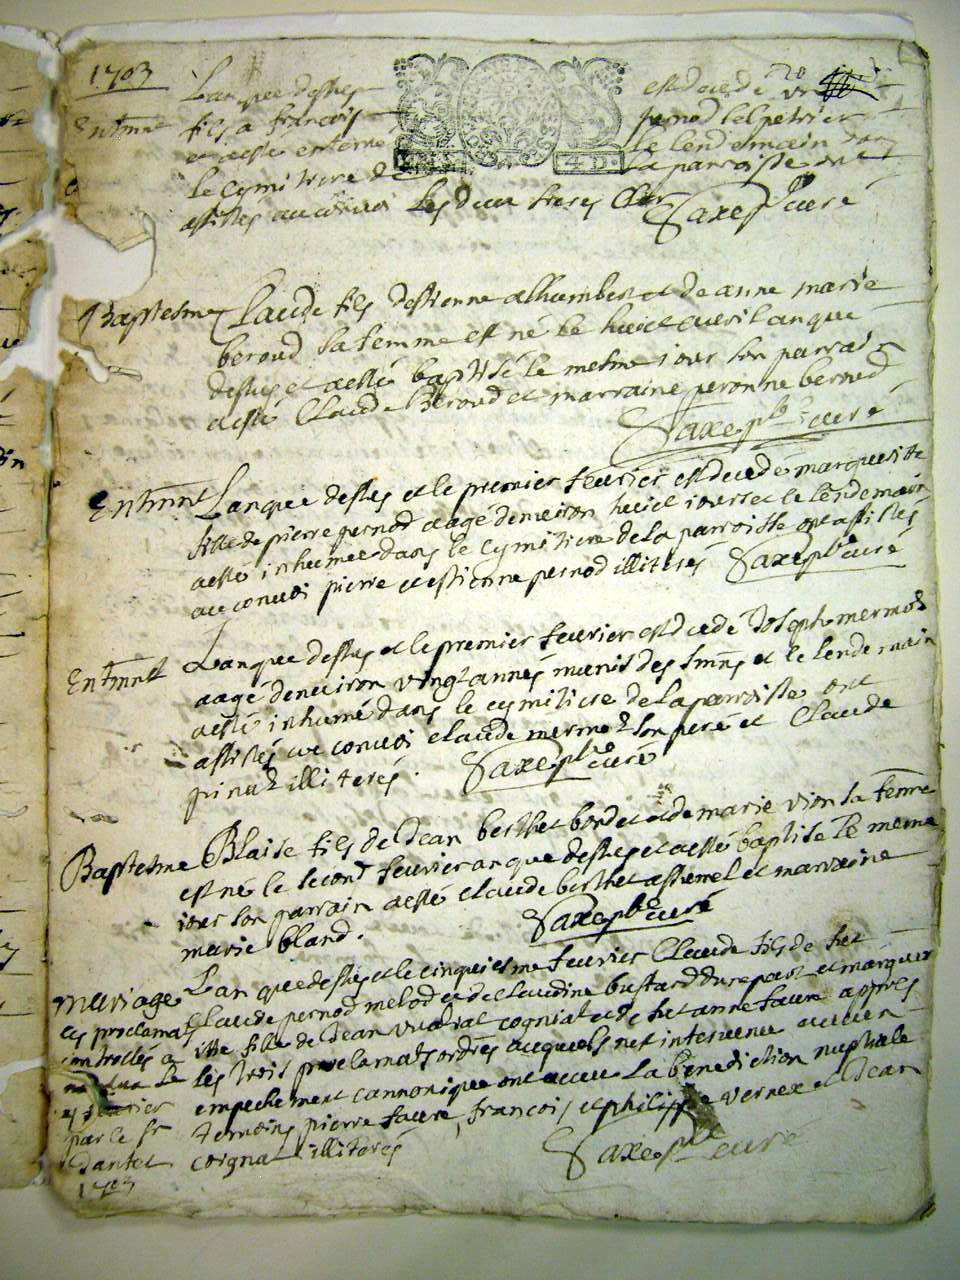 1703
Lan que dessus est decede
Enterrmt fils a francois pernod lelpetrier
et a esté enterré le lendemain dans
le cymitiere de la parroisse ont
assistés au convoi les deux freres Saxe pbr curé
4 D.
Baptesme Claude fils destienne alhumbert et de anne marie
beroud sa femme est né le huict avril an que
dessus et a esté baptisé le mesme iour son parrain
a esté Claude Beroud et marraine peronne beroud
Saxe pbr curé
Enterrmt Lan que dessus et le premier fevrier est decedé marguerite
fille de pierre pernod aagé denviron huict iours et le lendemain
a esté inhumee dans le cymitiere de la parroisse ont assistés
au convoi pierre et estienne pernod illiterés Saxe pbr curé
Enterrmt Lan que dessus et le premier fevrier est decedé Joseph mermod
aagé denviron vingt années munis des smns et le lendemain
a esté inhumé dans le cymitiere de la parroisse ont
assistés au convoi claude mermod son pere et Claude
pinad illiterés. Saxe pbr curé
Baptesme Blaise fils de Jean berthet bondet et de marie vion sa femme
est né le second fevrier an que dessus et a esté baptisé le meme
iour son parrain a esté claude berthet assernel et marraine
marie bland. Saxe pbr curé
Mariage Lan que dessus et le cinquiesme fevrier Claude fils de fut
claude pernod melod et de claudine bustard dune part et marguer
itte fille de Jean vualliat cogniat et de fut anne favre appres
les trois proclamats ordres ausquels net intervenu aucun
empechement cannonique ont receu la benediction nuptiale
temoins pierre favre, francois et philippe vernex et Jean
coignat illiterés Saxe pbr curé
es proclamats
controllés a
le
fevrier
par le sr
dantet
1703